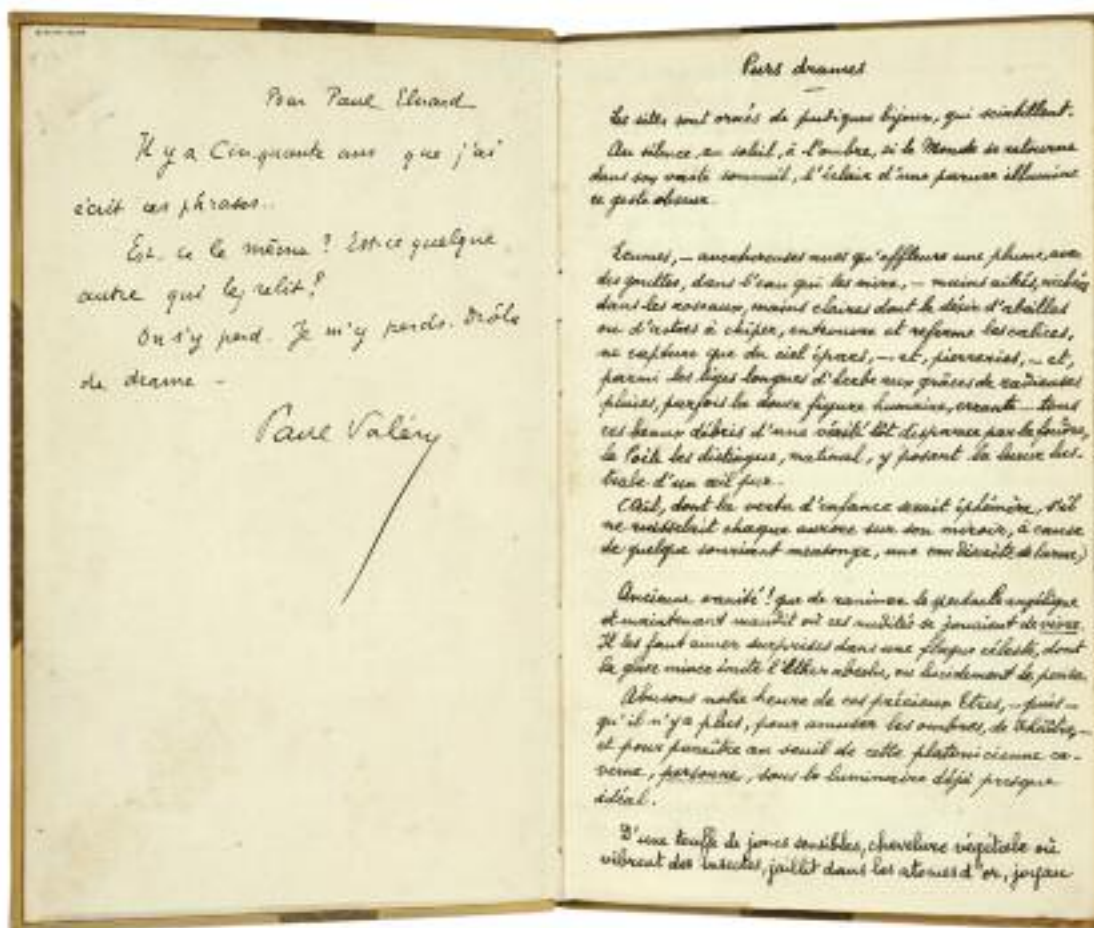 Pour Paul Eluard
Il y a Cinquante ans que j'ai
écrit ces phrases..
Est-ce le même? Est-ce quelque
autre qui les relit?
On s'y perd. Je m'y perds. Drôle
de drame –
Paul Valéry
Purs drames
Les sites sont ornés de pudiques bijoux, qui scintillent.
Au silence, au soleil, à l'ombre, si le Monde se retourne
dans son vaste sommeil, l'éclair d'une parure illumine
ce geste obscur.
Ecumes, – nues qu'effleure une plume, avec
des gouttes, dans l'eau qui les mire, – mains ailées,
dans les roseaux, mains claires dont le désir d'abeilles
ou d'astres à chiper, entrouvre et referme les calices,
ne capture que du ciel épars, – et, pierreries, – et,
parmi les tiges longues d'herbe aux grâces de radieuses
pluies, parfois la douce figure humaine, errante – tous
ces beaux débris d'une vérité tôt disparue par la foudre,
le Poète les distingue, matinal, y posant la lueur lus-
trale d'un œil pur.
(Œil, dont la vertu d'enfance serait éphémère, s'il
ne ruisselait chaque aurore sur son miroir, à cause
de quelque souriant mensonge, une eau directe de larme,)
Ancienne vanité! que de ranimer le spectacle angélique
et maintenant maudit où ces nudités se jouaient de vivre.
Il les faut aimer surprises dans une flaque céleste, dont
la gaze mince imite l'Ether absolu, ou lucidement le pense.
Abusons notre heure de ces précieux Etres, – puis–
qu'il n'y a plus, pour amuser les ombres, de théâtre, –
et pour paraître au seuil de cette platonicienne ca-
verne, personne, sous le luminaire déjà presque
idéal.
D'une touffe de joncs sensibles, chevelure végétale où
vibrent des insectes, jaillit dans les atomes d'or, joyau